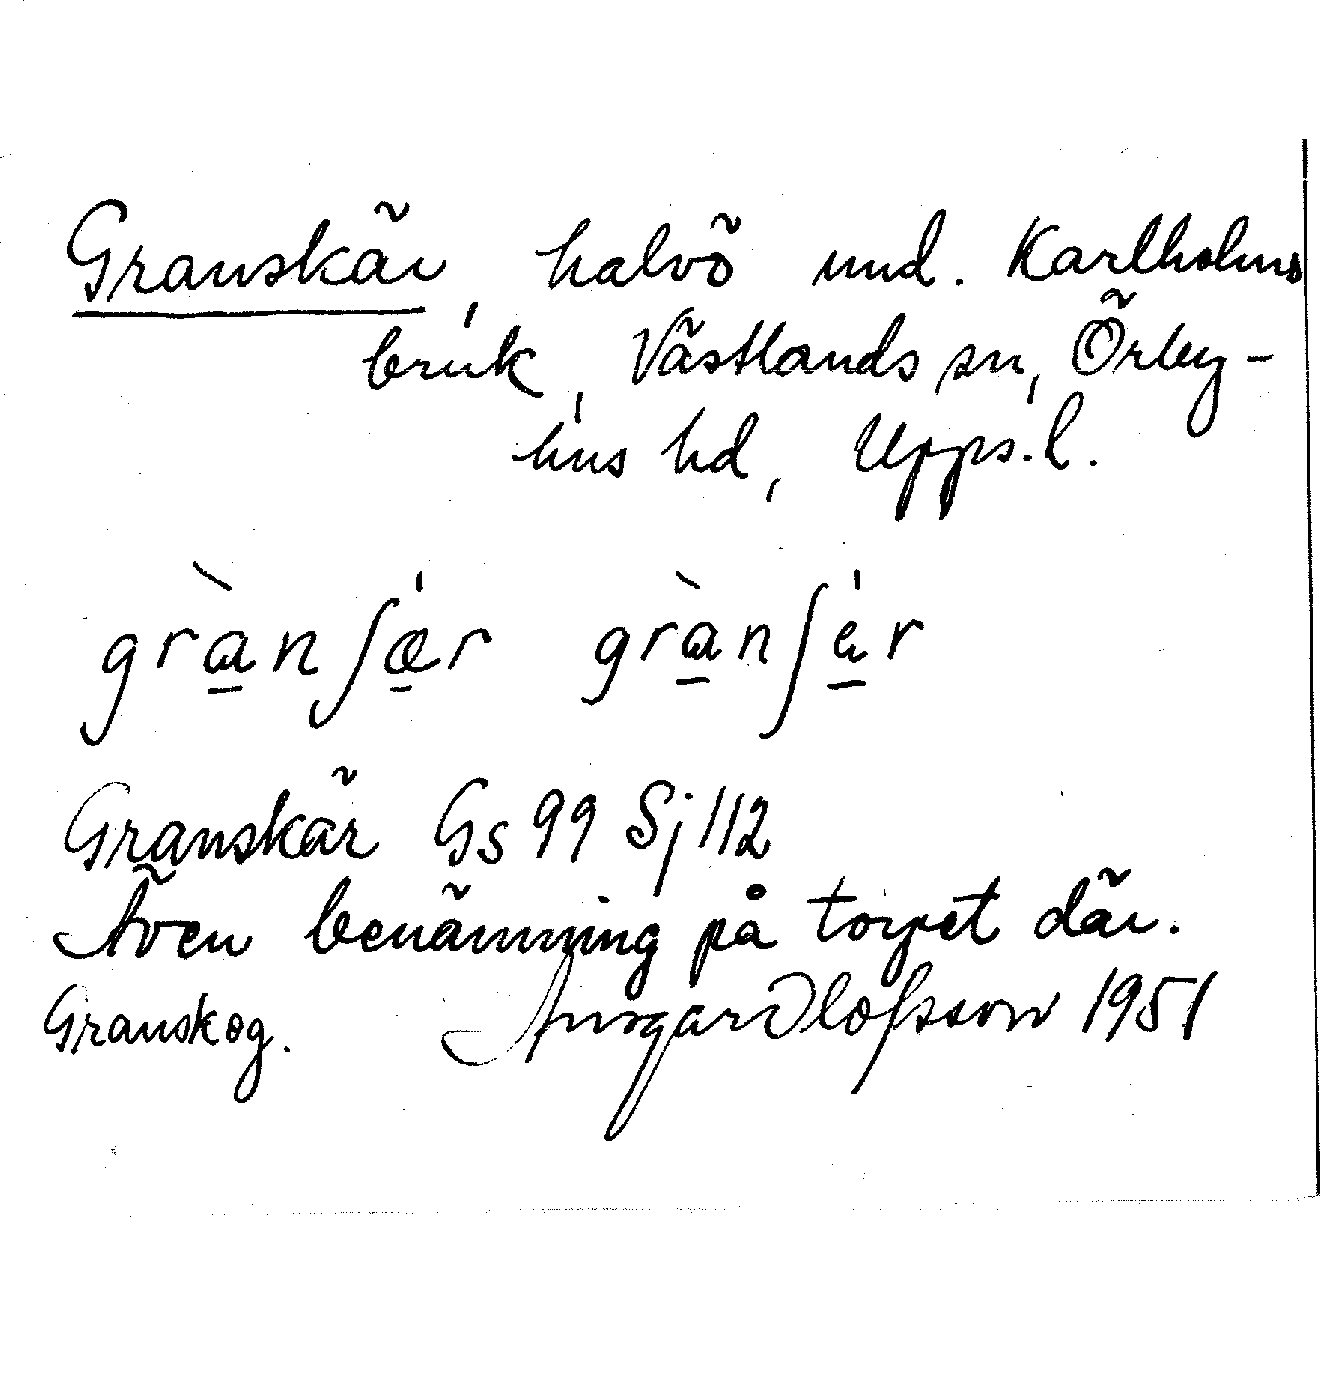 Granskär, halvö und. Karlholms
bruk, Västlands sn, Örby-
hus hd, Upps. l.
gràn ʃǽr gràn ʃér
Granskär Gs 99 Sj 112
Även benämning på torpet där.
Granskog. Ansgar Olofsson 1951